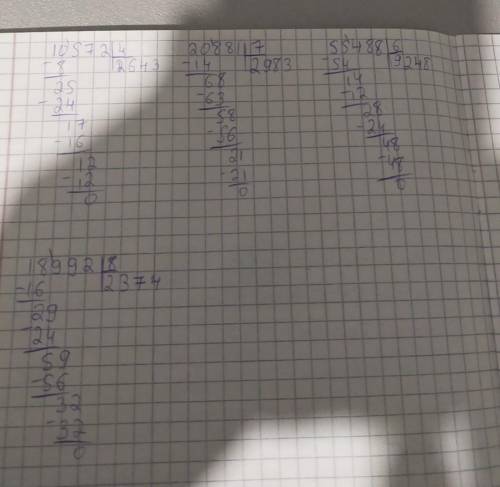 10572 4
- 8 2643
25
- 24
17
- 16
12
- 12
0
20881 7
- 14 2983
68
- 63
58
- 56
21
- 21
0
55488 6
- 54 9248
14
- 12
28
- 24
48
- 48
0
18992 8
- 16 2374
29
- 24
59
- 56
32
- 32
0